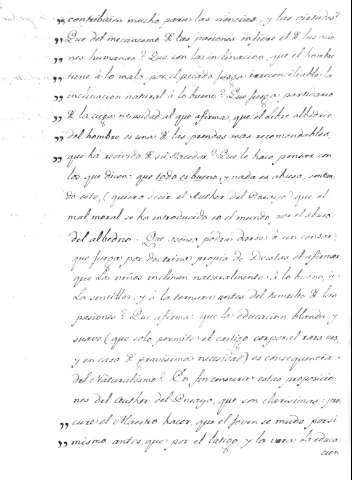 „ contribuien mucho para los vicios, y las virtudes?
„ Que del mecanismo de las pasiones infiere el de las
„ nes humanas? Que con la inclinacion, que el hombre
„ tiene á lo malo, por el pecado, juzga irreconciliable la
„ inclinacion natural á lo bueno? Que juzga, partidario
„ de la ciega necesidad al que afirma, que el libre albedrio
„ del hombre es una de las prendas mas recomendables,
„ que ha recivido de su Hacedor? Que le hace pensar con
los que dicen: que todo es bueno, y nada es abuso, senten-
do esto, (quiere decir el Author del Ensayo) que el
mal moral se ha introducido en el mundo, por el abuso
del albedrio. Que asenso podrá darse á un censor,
que juzga por doctrina propia de Deistas el afirmar
que los niños inclinen naturalmente á lo bueno, á
la sencillez, y á la ternura antes del tumulto de las
pasiones? Que afirma: que la educacion blanda, y
suave (que solo permite el castigo corporal rara vez,
y en caso de gravisima necesidad) es consequencia
del Naturalismo? En fin censura estas proposicio-
nes del Author del Ensayo, que son clarisimas: pro-
„ cure el Maestro hacer, que el Joven se mude por si
„ mismo antes, que por el latigo, y la vara. La educa-
cion